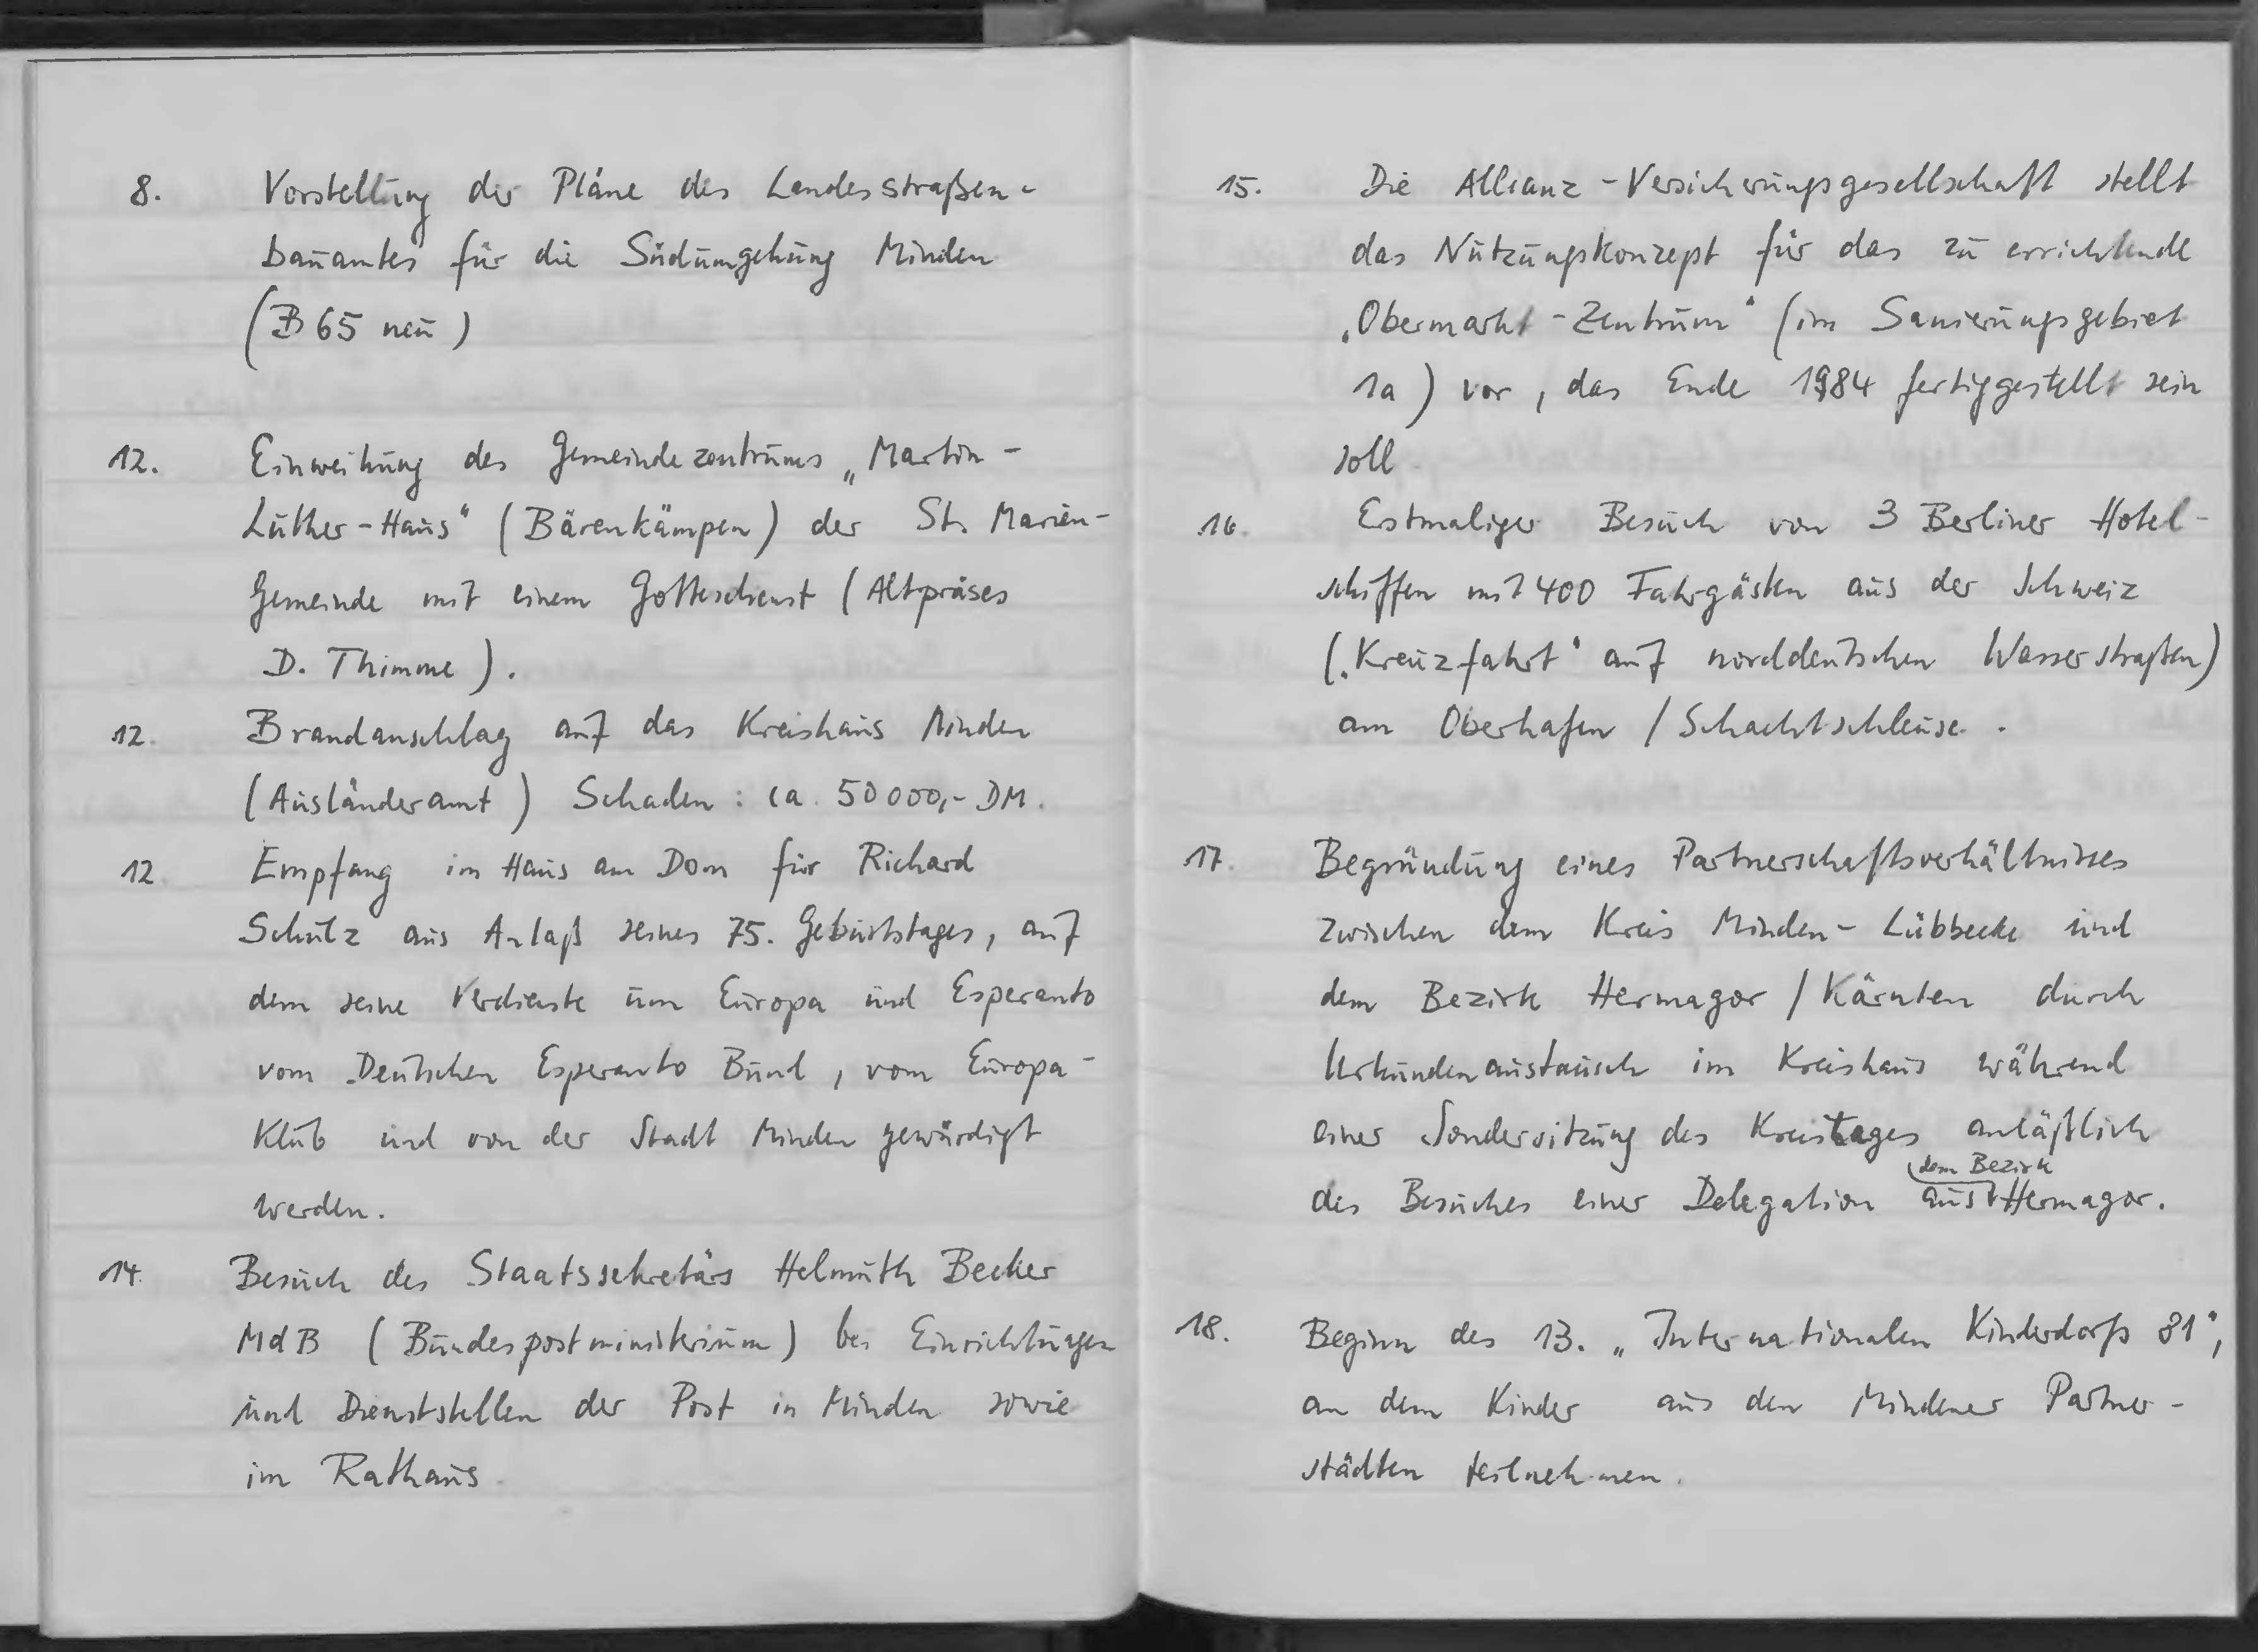 8. Vorstellung der Pläne des Landesstraßen-
bauamtes für die Südumgehung Minden
(B 65 neu)
12. Einweihung des Gemeindezentrums „Martin-
Luther-Haus" (Bärenkämpen) der St. Marien-
Gemeinde mit einem Gottesdienst (Altpräses
D. Thimme).
12. Brandanschlag auf das Kreishaus Minden
(Ausländeramt) Schaden: ca. 50000,- DM.
12 Empfang im Haus am Dom für Richard
Schulz aus Anlaß seines 75. Geburtstages, auf
dem seine Verdienste um Europa und Esperanto
vom Deutschen Esperanto Bund, vom Europa-
Klub und von der Stadt Minden gewürdigt
werden.
14. Besuch des Staatssekretärs Helmuth Becker
MdB (Bundespostministerium) bei Einrichtungen
und Dienststellen der Post in Minden sowie
im Rathaus.
15. Die Allianz-Versicherungsgesellschaft stellt
das Nutzungskonzept für das zu errichtende
„Obermarkt-Zentrum" (im Sanierungsgebiet
1a) vor, das Ende 1984 fertiggestellt sein
soll.
16. Erstmaliger Besuch von 3 Berliner Hotel-
schiffen mit 400 Fahrgästen aus der Schweiz
(„Kreuzfahrt" auf norddeutschen Wasserstraßen)
am Oberhafen / Schachtschleuse.
17. Begründung eines Partnerschaftsverhältnisses
zwischen dem Kreis Minden-Lübbecke und
dem Bezirk Hermagor / Kärnten durch
Urkundenaustausch im Kreishaus während
einer Sondersitzung des Kreistages anläßlich
des Besuches einer Delegation aus dem Bezirk Hermagor.
18. Beginn des 13. „Internationalen Kinderdorfs 81",
an dem Kinder aus den Mindener Partner-
städten teilnehmen.